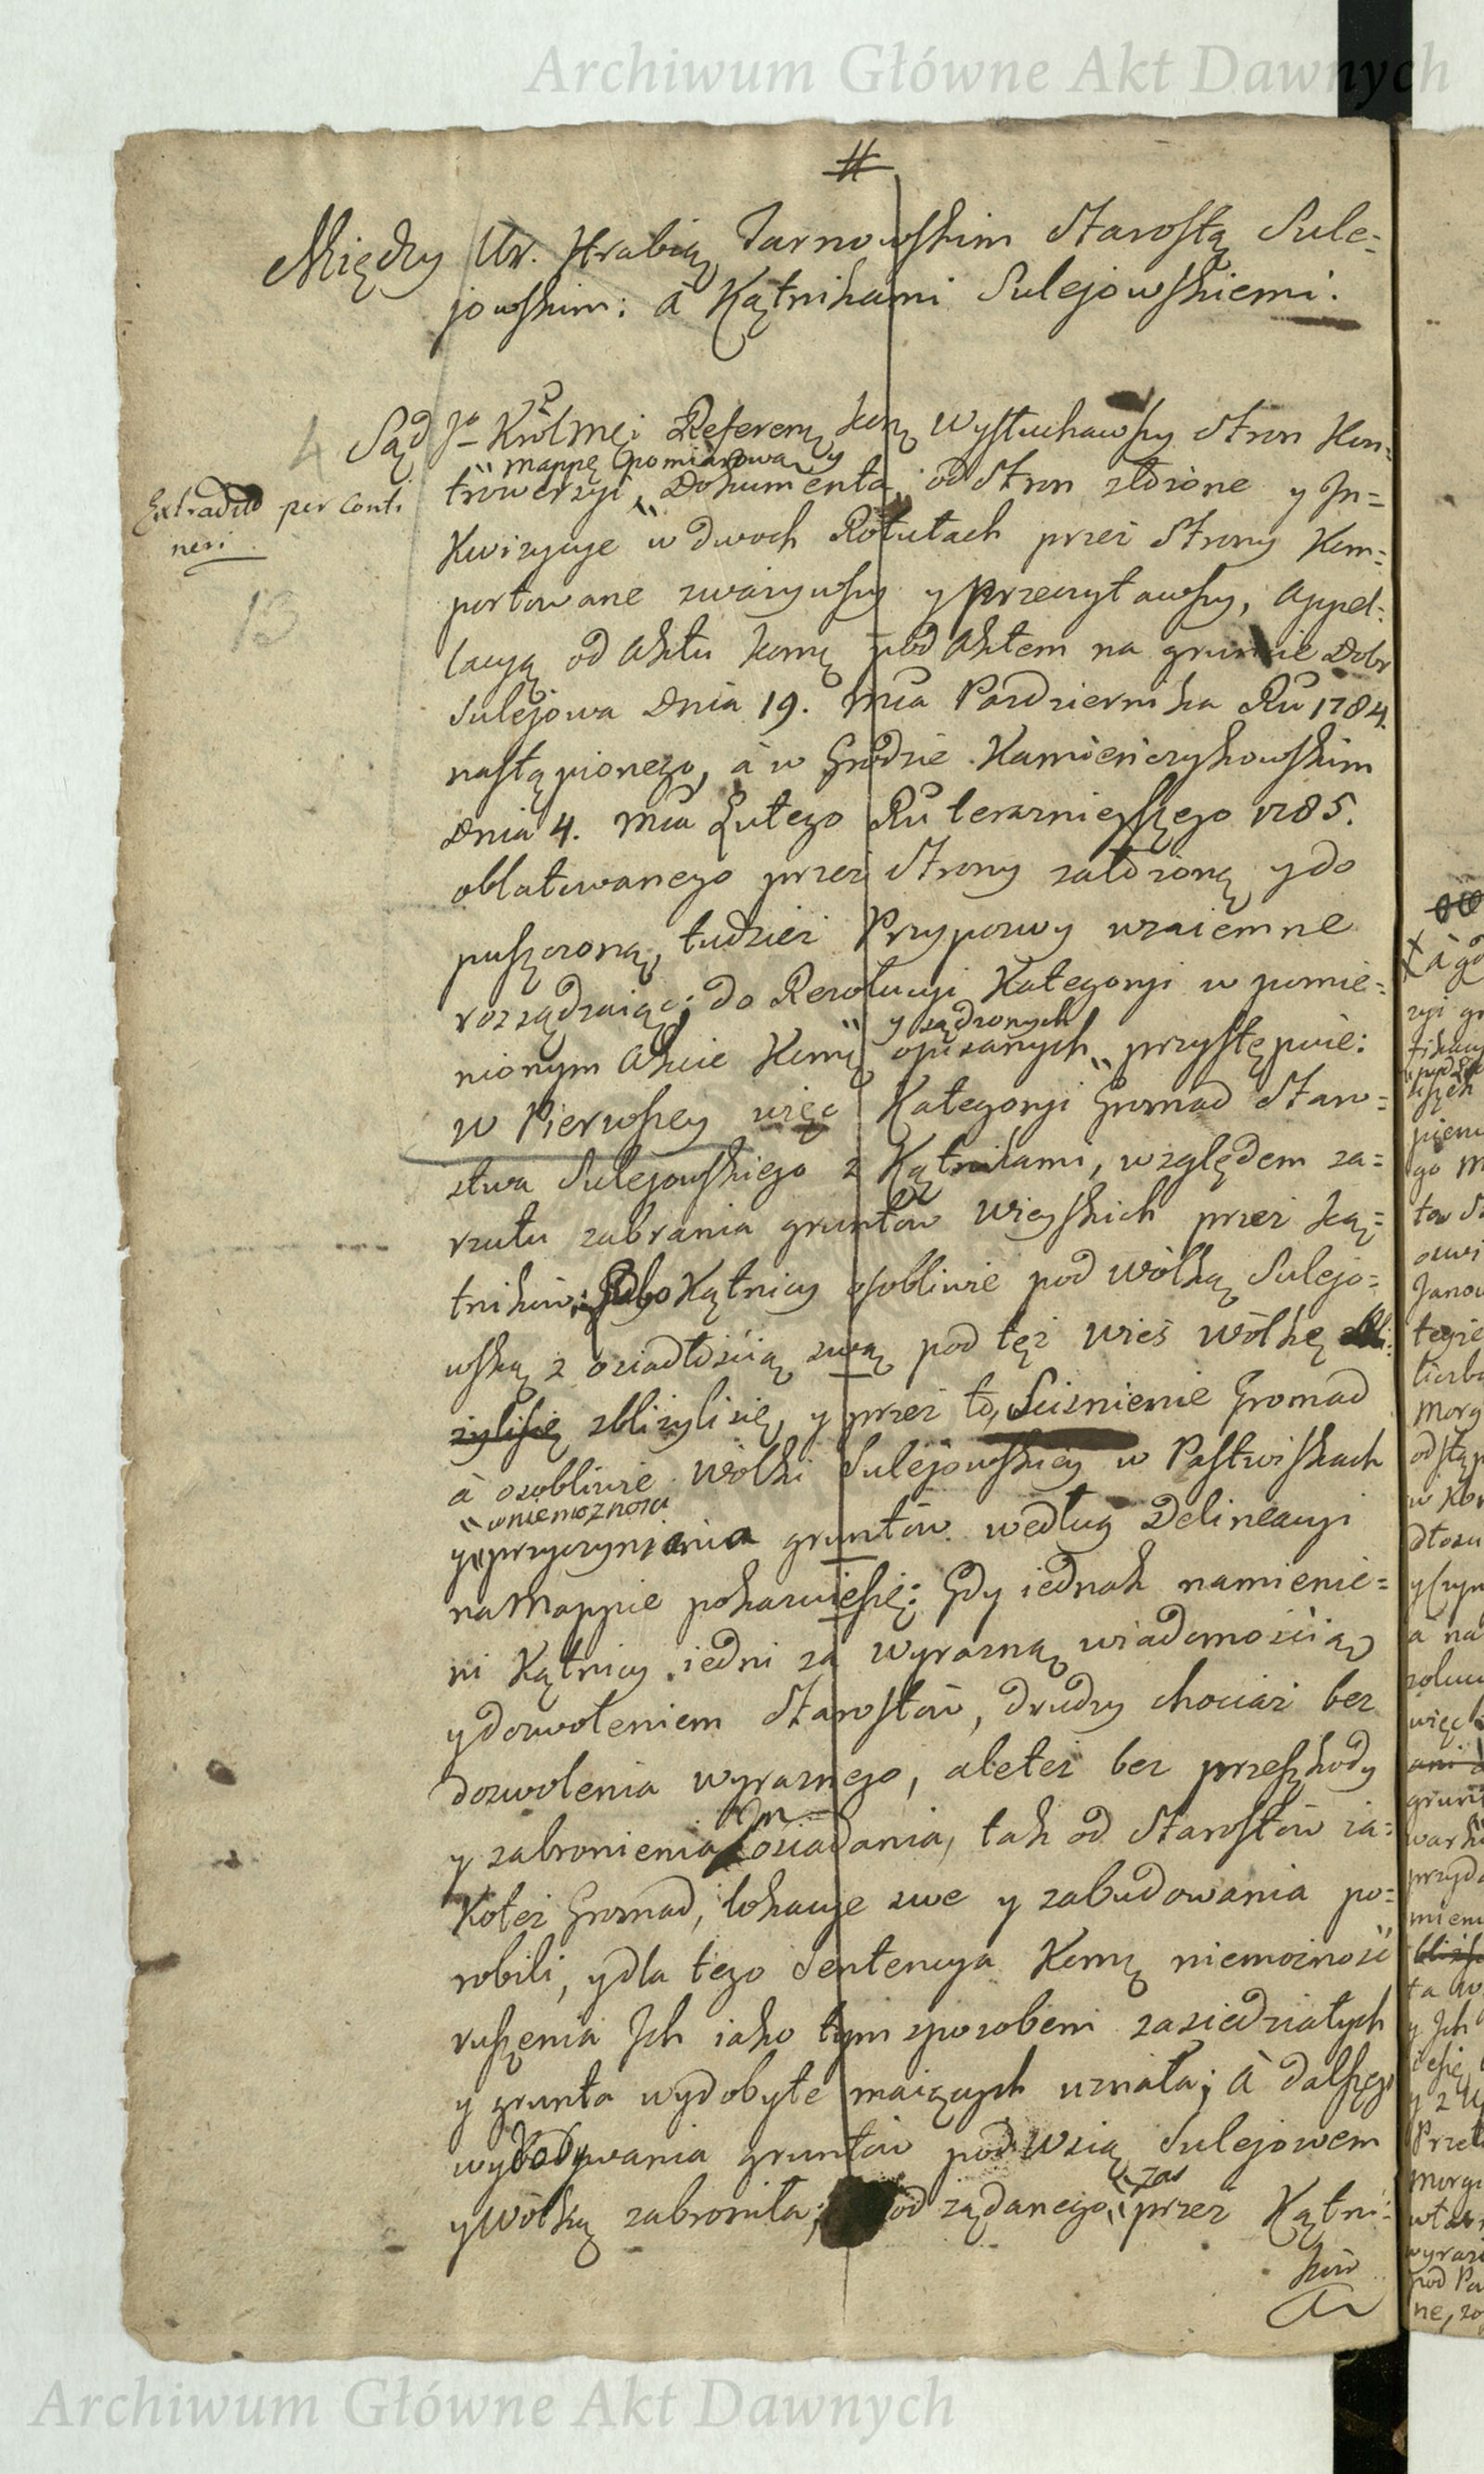 Archiwum Główne Akt Dawnych
#
Między Ur. Hrabią Tarnowskim Starostą Sule=
jowskim: à Kątnikami Sulejowskiemi.
4
Sąd Jo Królmci Referen: kor: wysłuchawszy Stron Kon=
mappę pomiarową y
trowersyi, Dokumenta od Stron złożone y In=
Extradità per conti
neri.
kwizycye w dwoch Rotułach przez Strony Kom=
13
portowane zważywszy y przeczytawszy, appel=
lacyą od Aktu Komi: pod Aktem na gruncie Dobr
Sulejowa Dnia 19. Mca Pazdziernika Ru 1784.
nastąpionego, à w Grodzie Kamieńczykowskim
Dnia 4. Mca Lutego Ru teraznieyszego 1785.
oblatowanego przez Strony założoną y do
puszczoną, tudzież Przypozwy wzaiemne
rozsądzaiąc; do Rezolucyi Kategoryi w pomie=
y sądzonych
nionym Akcie Komi: opisanych przystępuie:
w Pierwszey więc Kategoryi Gromad Staro=
stwa Sulejowskiego z Kątnikami, względem za=
rzutu zabrania gruntów wieyskich przez Kąt=
tników; Lubo Kątnicy osobliwie pod wólką Sulejo=
wską z osiadłością swą pod też wieś wólkę
żylisię zbliżyli się, y przez to, Ściśnienie Gromad
à osobliwie wólki Sulejowskiey w Pastwiskach
w niemożności
y przyczyniania gruntów według Delineacyi
na Mappie pokazuiesię: Gdy iednak namienie=
ni Kątnicy iedni za wyrazną wiadomością
y dozwoleniem Starostów, drudzy chociaż bez
dozwolenia wyraznego, aleteż bez przeszkody
y zabronienia osiadania, tak od Starostów ia=
koteż Gromad, lokacye swe y zabudowania po=
robili, y dla tego Sentencya Komi: niemożność
ruszenia Ich iako tym sposobem zasiedziałych
y grunta wydobyte maiących uznała; à dalszego
wydobywania gruntów pod Wsią Sulejowem
zas
y wólką zabroniła; od żądanego przez Kątni=
ków
Archiwum Główne Akt Dawnych